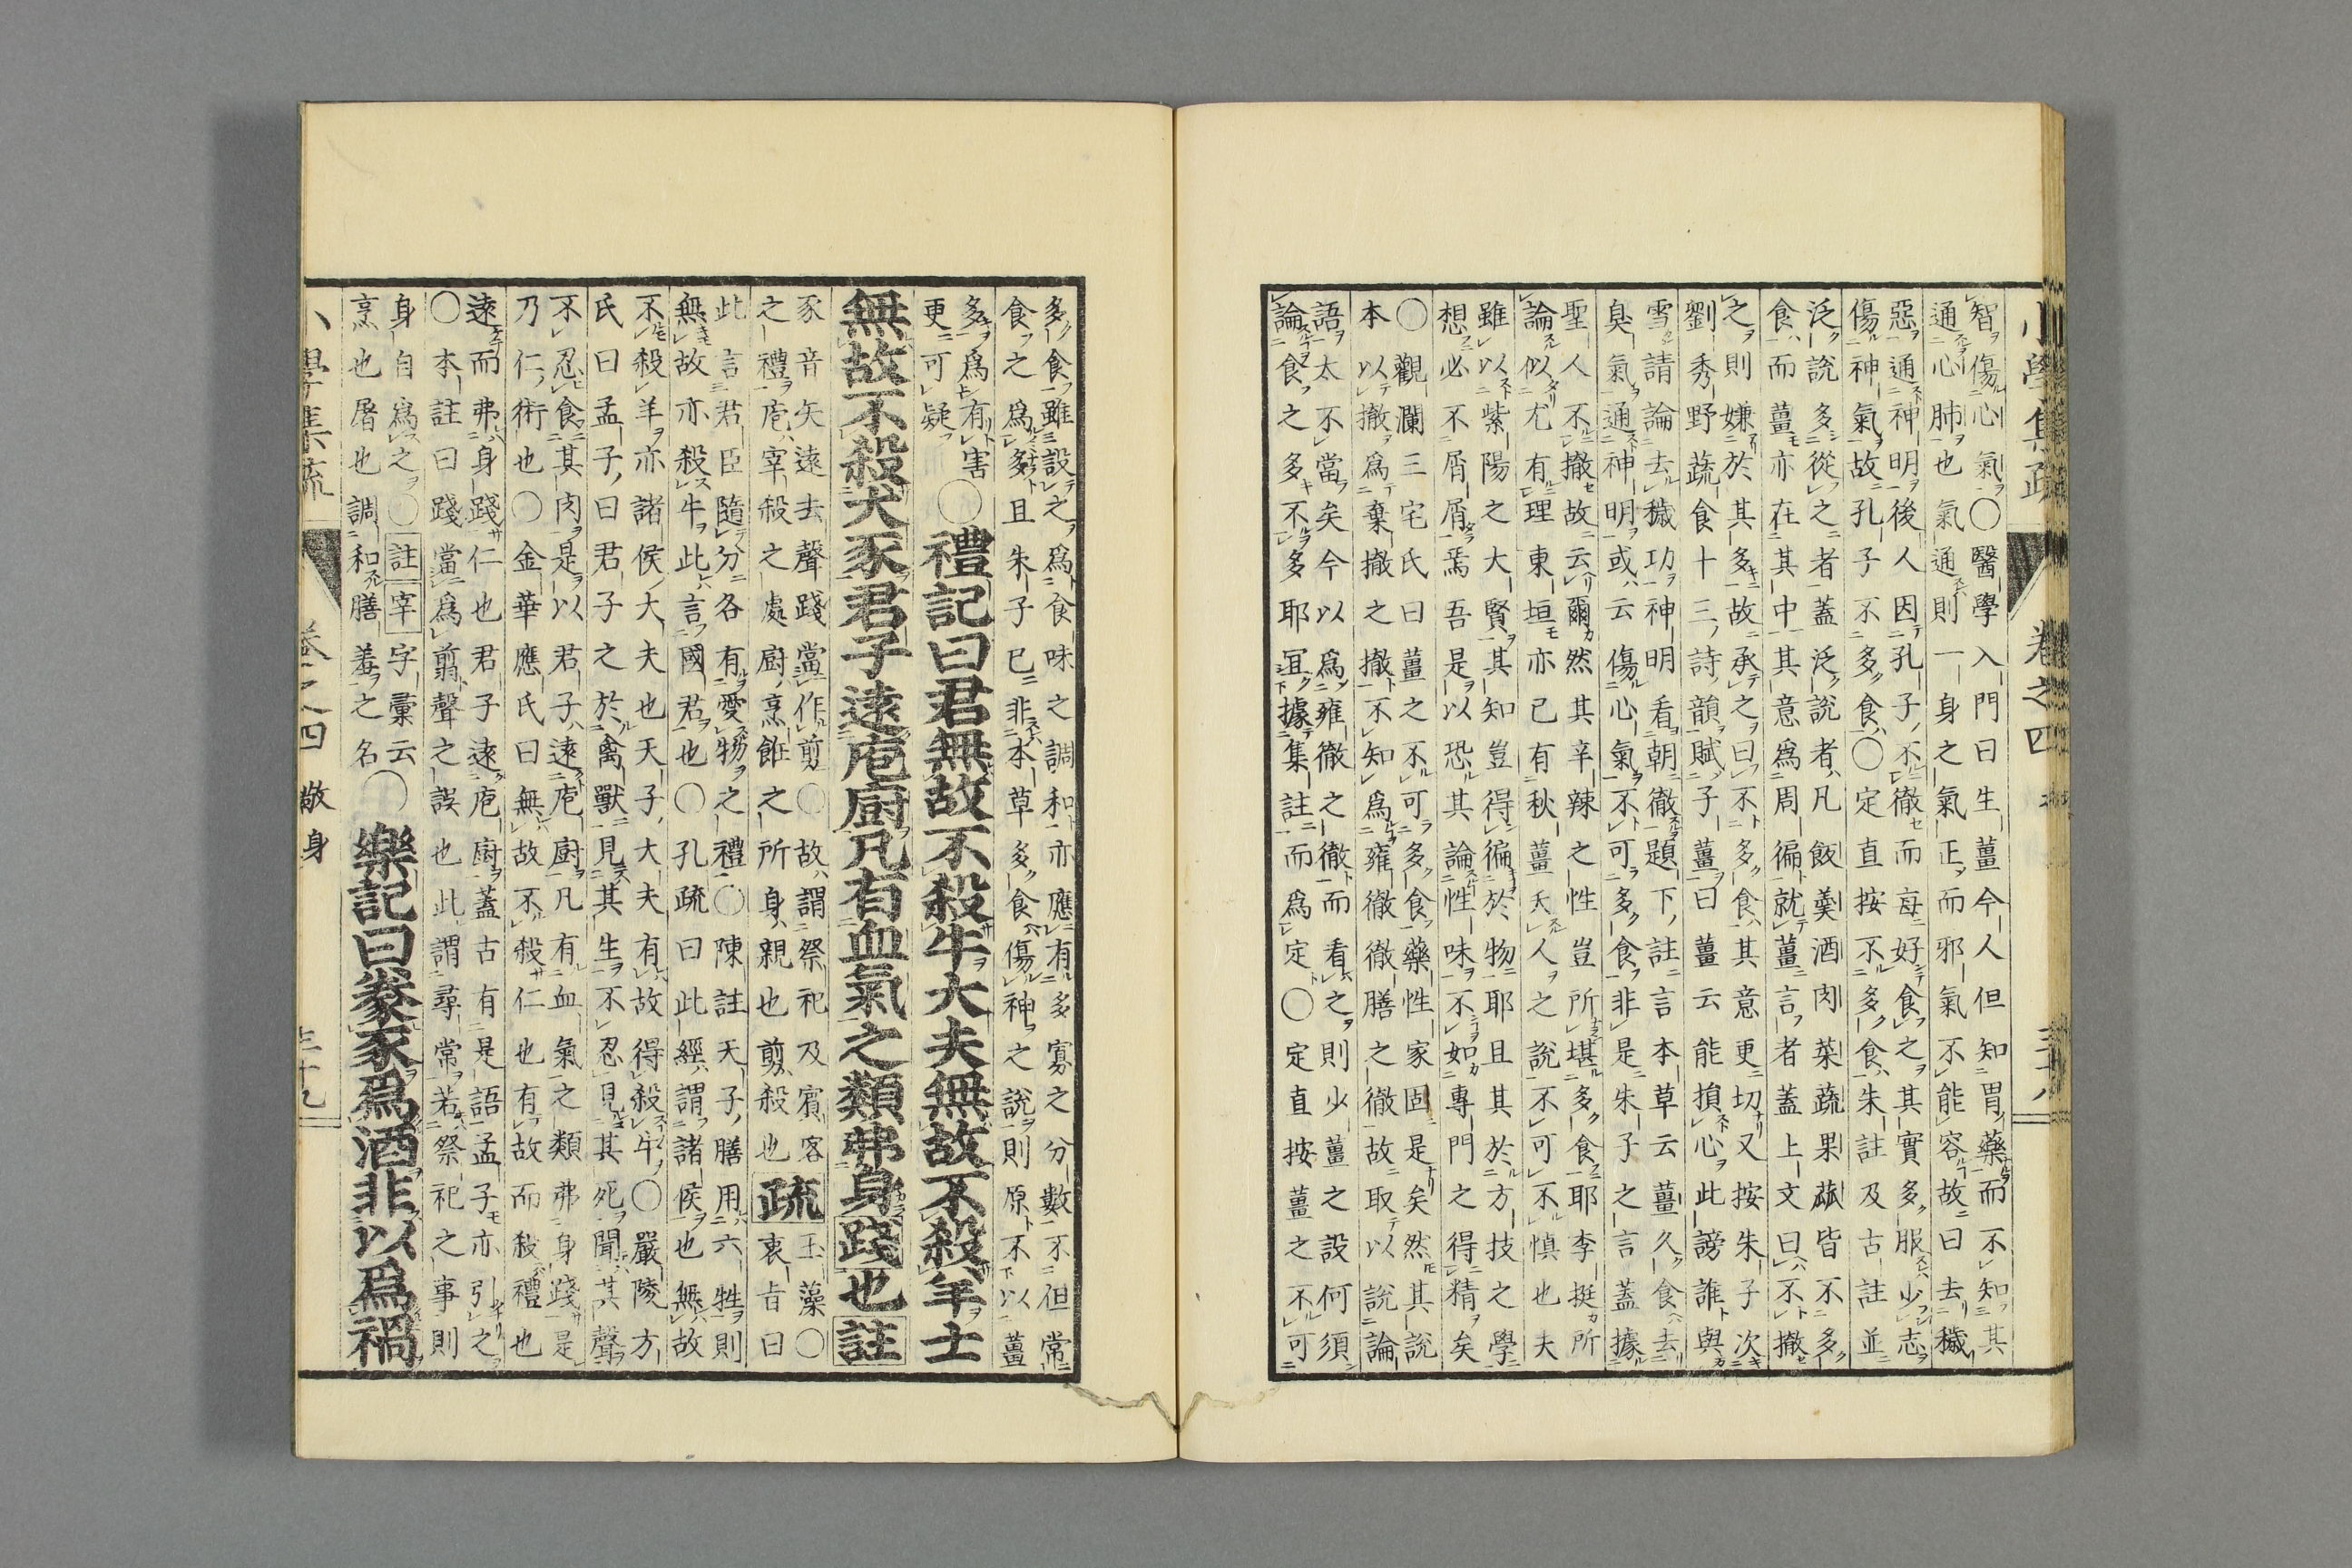 小學集疏 卷之四
智傷心氣〇醫學入門曰生薑今人但知胃藥而不知其
通心肺也氣通則一身之氣正而邪氣不能容故曰去穢
惡通神明後人因孔子不徹而每好食之其實多服少志
傷神氣故孔子不多食〇定直按不多食朱註及古註並
泛說多從之者蓋泛說者凡飯羹酒肉菜蔬果蓏皆不多
食而薑亦在其中其意爲周徧就薑言者蓋上文曰不撤
之則嫌於其多故承之曰不多食其意更切又按朱子次
劉秀野蔬食十三詩韻賦子薑曰薑云能損心此謗誰與
雪請論去穢功神明看朝徹題下註言本草云薑久食去
臭氣通神明或云傷心氣不可多食非是朱子之言蓋據
聖人不撤故云爾然其辛辣之性豈所堪多食耶李挺所
論似尤有理東垣亦已有秋薑夭人之說不可不愼也夫
雖以紫陽之大賢其知豈得徧於物耶且其於方技之學
想必不屑屑焉吾是以恐其論性味不如專門之得精矣
〇觀瀾三宅氏曰薑之不可多食藥性家固是矣然其說
本以撤爲棄撤之撤不知爲雍徹徹膳之徹故取以說論
語太不當矣今以爲雍徹之徹而看之則少薑之設何須
論食之多不多耶冝據集註而爲定〇定直按薑之不可
多食雖設之爲食味之調和亦應有多寡之分數不但常
食之爲多且朱子已非本草多食傷神之說則原不以薑
多爲有害
更可疑〇禮記曰君無故不殺牛大夫無故不殺羊士
無故不殺犬豕君子遠庖廚凡有血氣之類弗身踐也註
豕音矢遠去聲踐當作剪〇故謂祭祀及賓客
之禮庖宰殺之處廚烹飪之所身親也剪殺也疏玉藻〇
衷旨曰
此言君臣隨分各有愛物之禮〇陳註天子膳用六牲則
無故亦殺牛此言國君也〇孔疏曰此經謂諸侯也無故
不殺羊亦諸侯大夫也天子大夫有故得殺牛〇嚴陵方
氏曰孟子曰君子之於禽獸見其生不忍見其死聞其聲
不忍食其肉是以君子遠庖廚凡有血氣之類弗身踐是
乃仁術也〇金華應氏曰無故不殺仁也有故而殺禮也
遠而弗身踐仁也君子遠庖廚蓋古有是語孟子亦引之
〇本註曰踐當爲翦聲之誤也此謂尋常若祭祀之事則
身自爲之〇註宰字彙云
烹也屠也調和膳羞之名〇樂記曰豢豕爲酒非以爲禍
小學集疏 卷之四 敬身 三十九